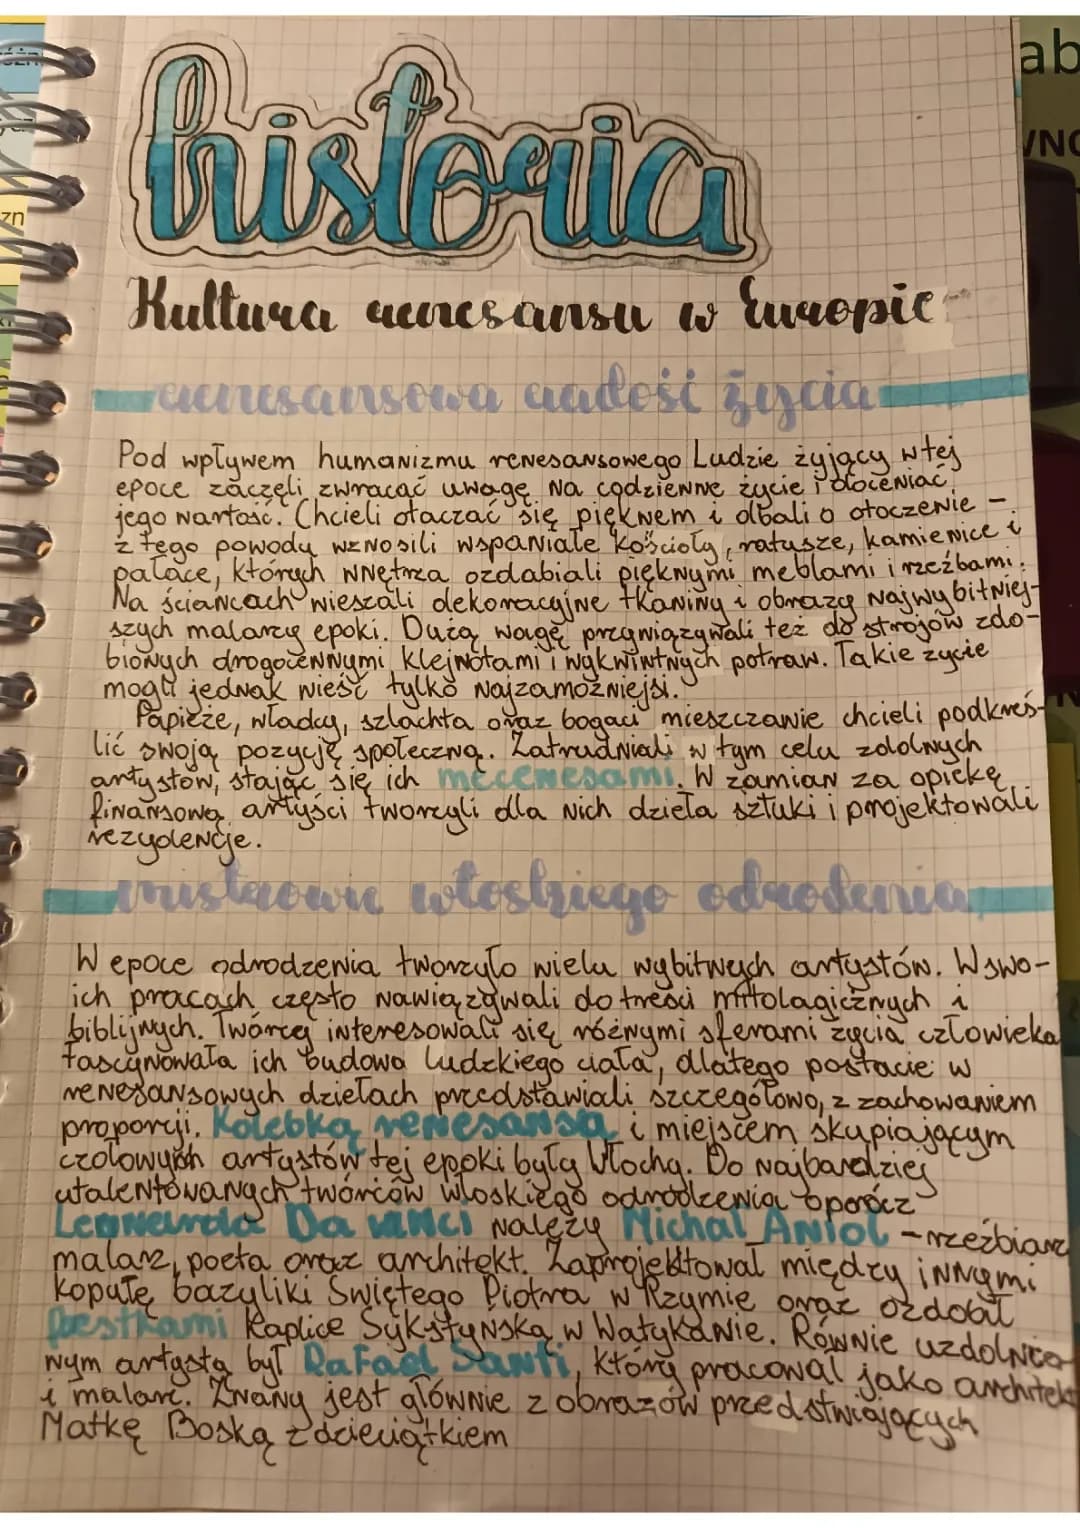 historia
Kultura renesansu w Europie
renesansowa radość życia
Pod wpływem humanizmu renesansowego Ludzie żyjący w tej
epoce zaczęli zwracać uwagę na codzienne życie i doceniać
jego wartość. Chcieli otaczać się pięknem i dbali o otoczenie –
z tego powody wznosili wspaniałe kościoły, ratusze, kamienice i
pałace, których wnętrza ozdabiali pięknymi meblami i rzeźbami.
Na ściańcach wieszali dekoracyjne tkaniny i obrazy najwybitniej-
szych malarzy epoki. Dużą wagę przywiązywali też do strojów zdo-
bionych drogocennymi klejnotami i wykwintnych potraw. Takie życie
mogli jednak wieść tylko najzamożniejsi.
Papieże, władcy, szlachta oraz bogaci mieszczanie chcieli podkreś-
lić swoją pozycję społeczną. Zatrudniali w tym celu zdolnych
artystów, stając się ich mecenesami. W zamian za opiekę
finansową artyści tworzyli dla nich dzieła sztuki i projektowali
rezydencje.
mistrzowie włoskiego odrodzenia
W epoce odrodzenia tworzyło wielu wybitnych artystów. W swo-
ich pracach często nawiązywali do treści mitologicznych i
biblijnych. Twórcy interesowali się różnymi sferami życia człowieka
fascynowała ich budowa ludzkiego ciała, dlatego postacie w
renesansowych dziełach przedstawiali szczegółowo, z zachowaniem
proporcji. Kolebką renesansu i miejscem skupiającym
czołowych artystów tej epoki były Włochy. Do najbardziej
utalentowanych twórców włoskiego odrodzenia oprócz
Leonarda Da Vinci należy Michał Anioł – rzeźbiarz
malarz, poeta oraz architekt. Zaprojektował między innymi
kopułę bazyliki Świętego Piotra w Rzymie oraz ozdobił
freskami Kaplice Sykstyńską w Watykanie. Równie uzdolnio-
nym artystą był Rafael Santi, który pracował jako architekt
i malarz. Znany jest głównie z obrazów przedstwiających
Matkę Boską z dzieciątkiem
ab
zn